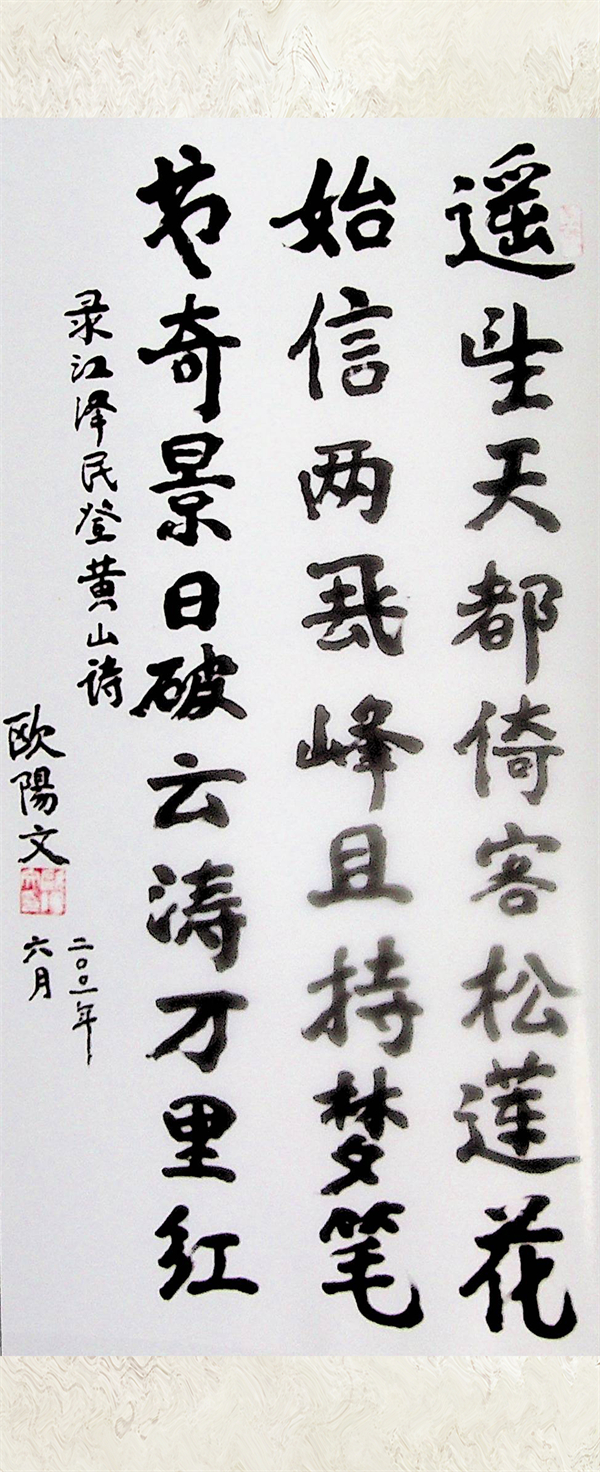 遥望天都倚客松莲花
始信两飛峰且持梦笔
书奇景日破云涛万里红
录江泽民登黄山诗
欧陽文
二〇〇一年
六月